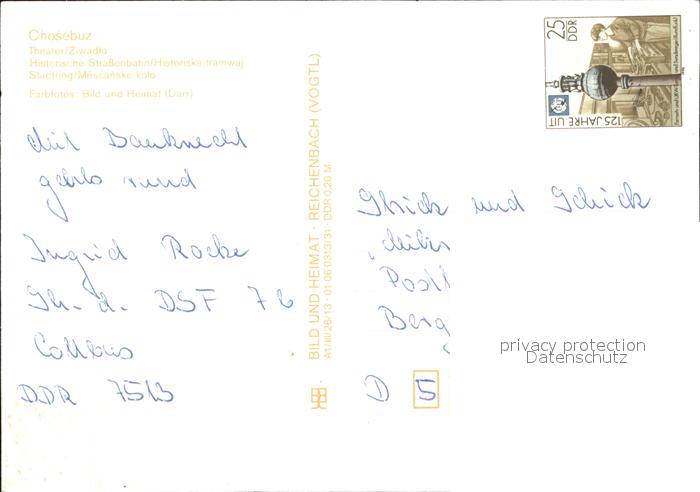 Chośebuz
Theater/Źiwadło
Historische Straßenbahn/Historiska tramwaj
Stadtring/Měsćańske koło
Farbfotos: Bild und Heimat (Darr)
mit Bauknecht
gehts rund
Ingrid
Str. d. DSF 76
Cottbus
DDR 7513
BILD UND HEIMAT · REICHENBACH (VOGTL)
A1/III/26/13 · 01 06 0313/31 · DDR 0,20 M
25
DDR
125 JAHRE UIT
Glück und Schick
Postf
Berg
D 5
privacy protection
Datenschutz